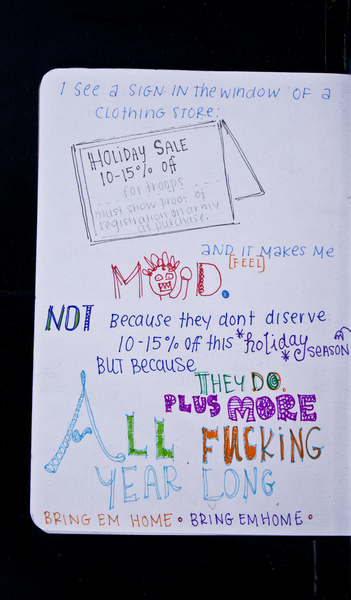 I See a SIGN IN the window OF a
CLOTHING STORE:
HOLIDAY SALE
10-15% off
for troops
must show proof of
registration on army
at purchase.
AND IT MAKES ME
[FEEL]
MAD.
NOT Because they dont diserve
10-15% off this *holiday
* season
BUT Because
THEY DO.
PLUS MORE
ALL FUCKING
YEAR LONG
BRING EM HOME • BRING EM HOME •